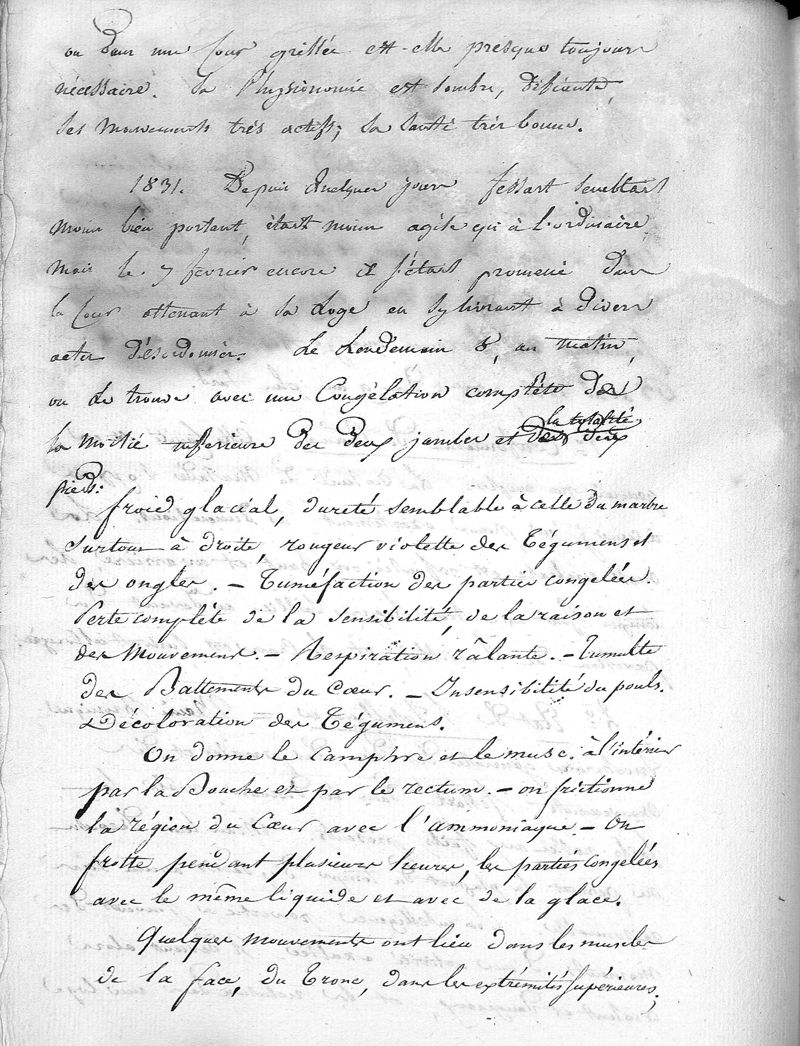 ou dans une Cour grillée est-elle presque toujours
nécessaire. Sa Physionomie est sombre, défiante,
ses mouvements très actifs; sa santé très bonne.
1831. Depuis quelques jours fessart semblait
moins bien portant, était moins agile qu'à l'ordinaire,
mais le 7 février encore il s'était promené dans
la Cour attenant à sa Loge en s'y livrant à divers
actes Désordonnés. Le Lendemain 8, au matin,
on Le trouve avec une Congélation complète de
la moitié inferieure des deux jambes et des deux
la totalité
pieds:
froid glacial, dureté semblable à celle du marbre
surtout à droite, rougeur violette des Tégumens et
des ongles. – Tuméfaction des parties congelées.
Perte complète de la sensibilité, de la raison et
des Mouvemens. – Respiration râlante. – Tumulte
des Battements du Cœur. – Insensibilité du pouls.
Décoloration des Tégumens.
On donne le Camphre et le musc. à l'intérieur
par la Bouche et par le rectum. – on frictionne
la région du Cœur avec l'ammoniaque – On
frotte pendant plusieurs heures, les parties congelées
avec le même liquide et avec de la glace.
Quelques mouvements ont lieu dans les muscles
de la face, du Tronc, dans les extrémités supérieures;